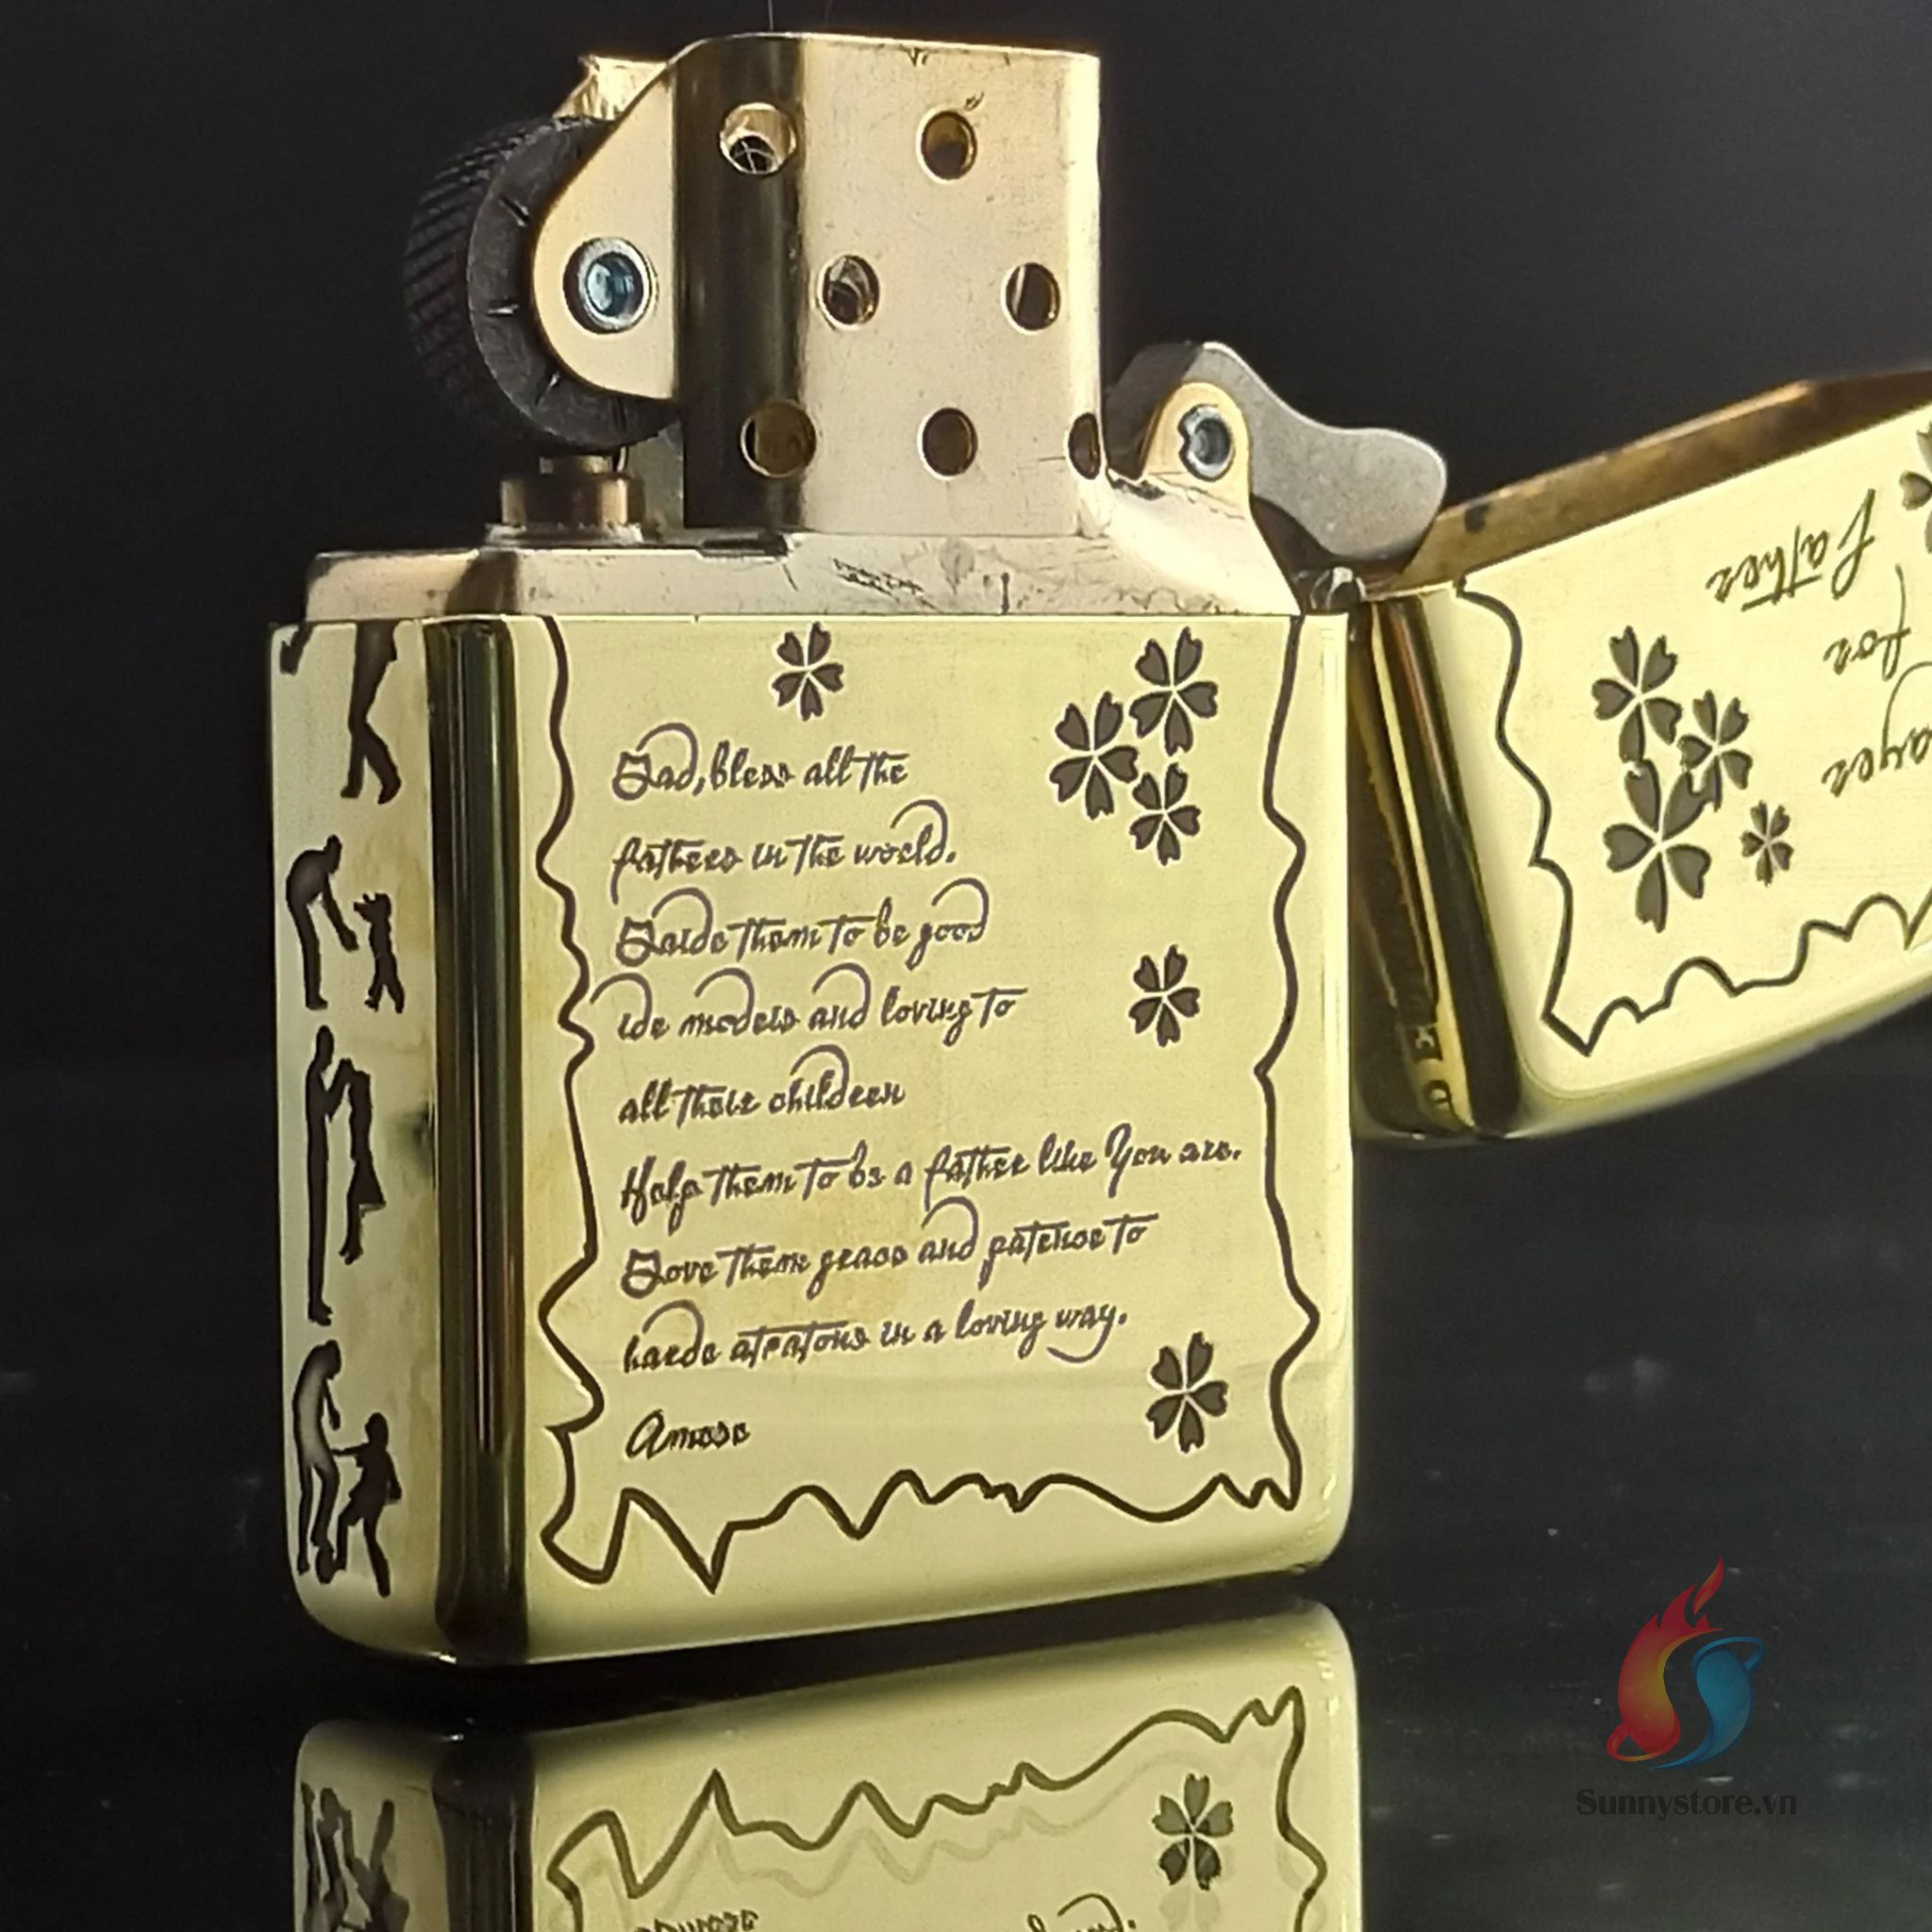 ayer
for
Father
God, bless all the
fathers in the world.
Guide them to be good
ide models and loving to
all their children
Help them to be a father like You are.
Gove them grace and patence to
harde atratons in a loving way.
Amese
Sunnystore.vn